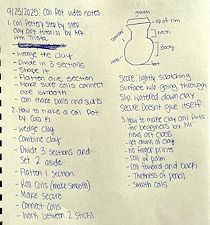 9/23/2025: Coil Pot video notes
1. Coil Pottery step by step
Clay Art Tutorial by Mr
with Trista
- Wedge the clay
- Divide in 3 sections
- Shape it
- Flatten one section
- Make sure coils connect
are smooth
- can make balls and swirls
2. How to make a Coil Pot
by Cara B.
- Wedge clay
- Combine clay
- Divide 3 sections and
Set 2 aside
- Flatten 1 section
- Roll Coils (make smooth)
- Make secure
- Connect Coils
- Work between 2 sticks
mouth
lip or rim
neck
Body
foot
Score: lightly scratching
Surface
going through
Slip: watered down clay
Secure: Doesn't glue itself
3. How to make clay coil pots
for beginners by Mr
- get chunk of clay
- no finger prints
- roll w/ palm
- roll forward and back
- Thickness of pencil
- Smooth coils